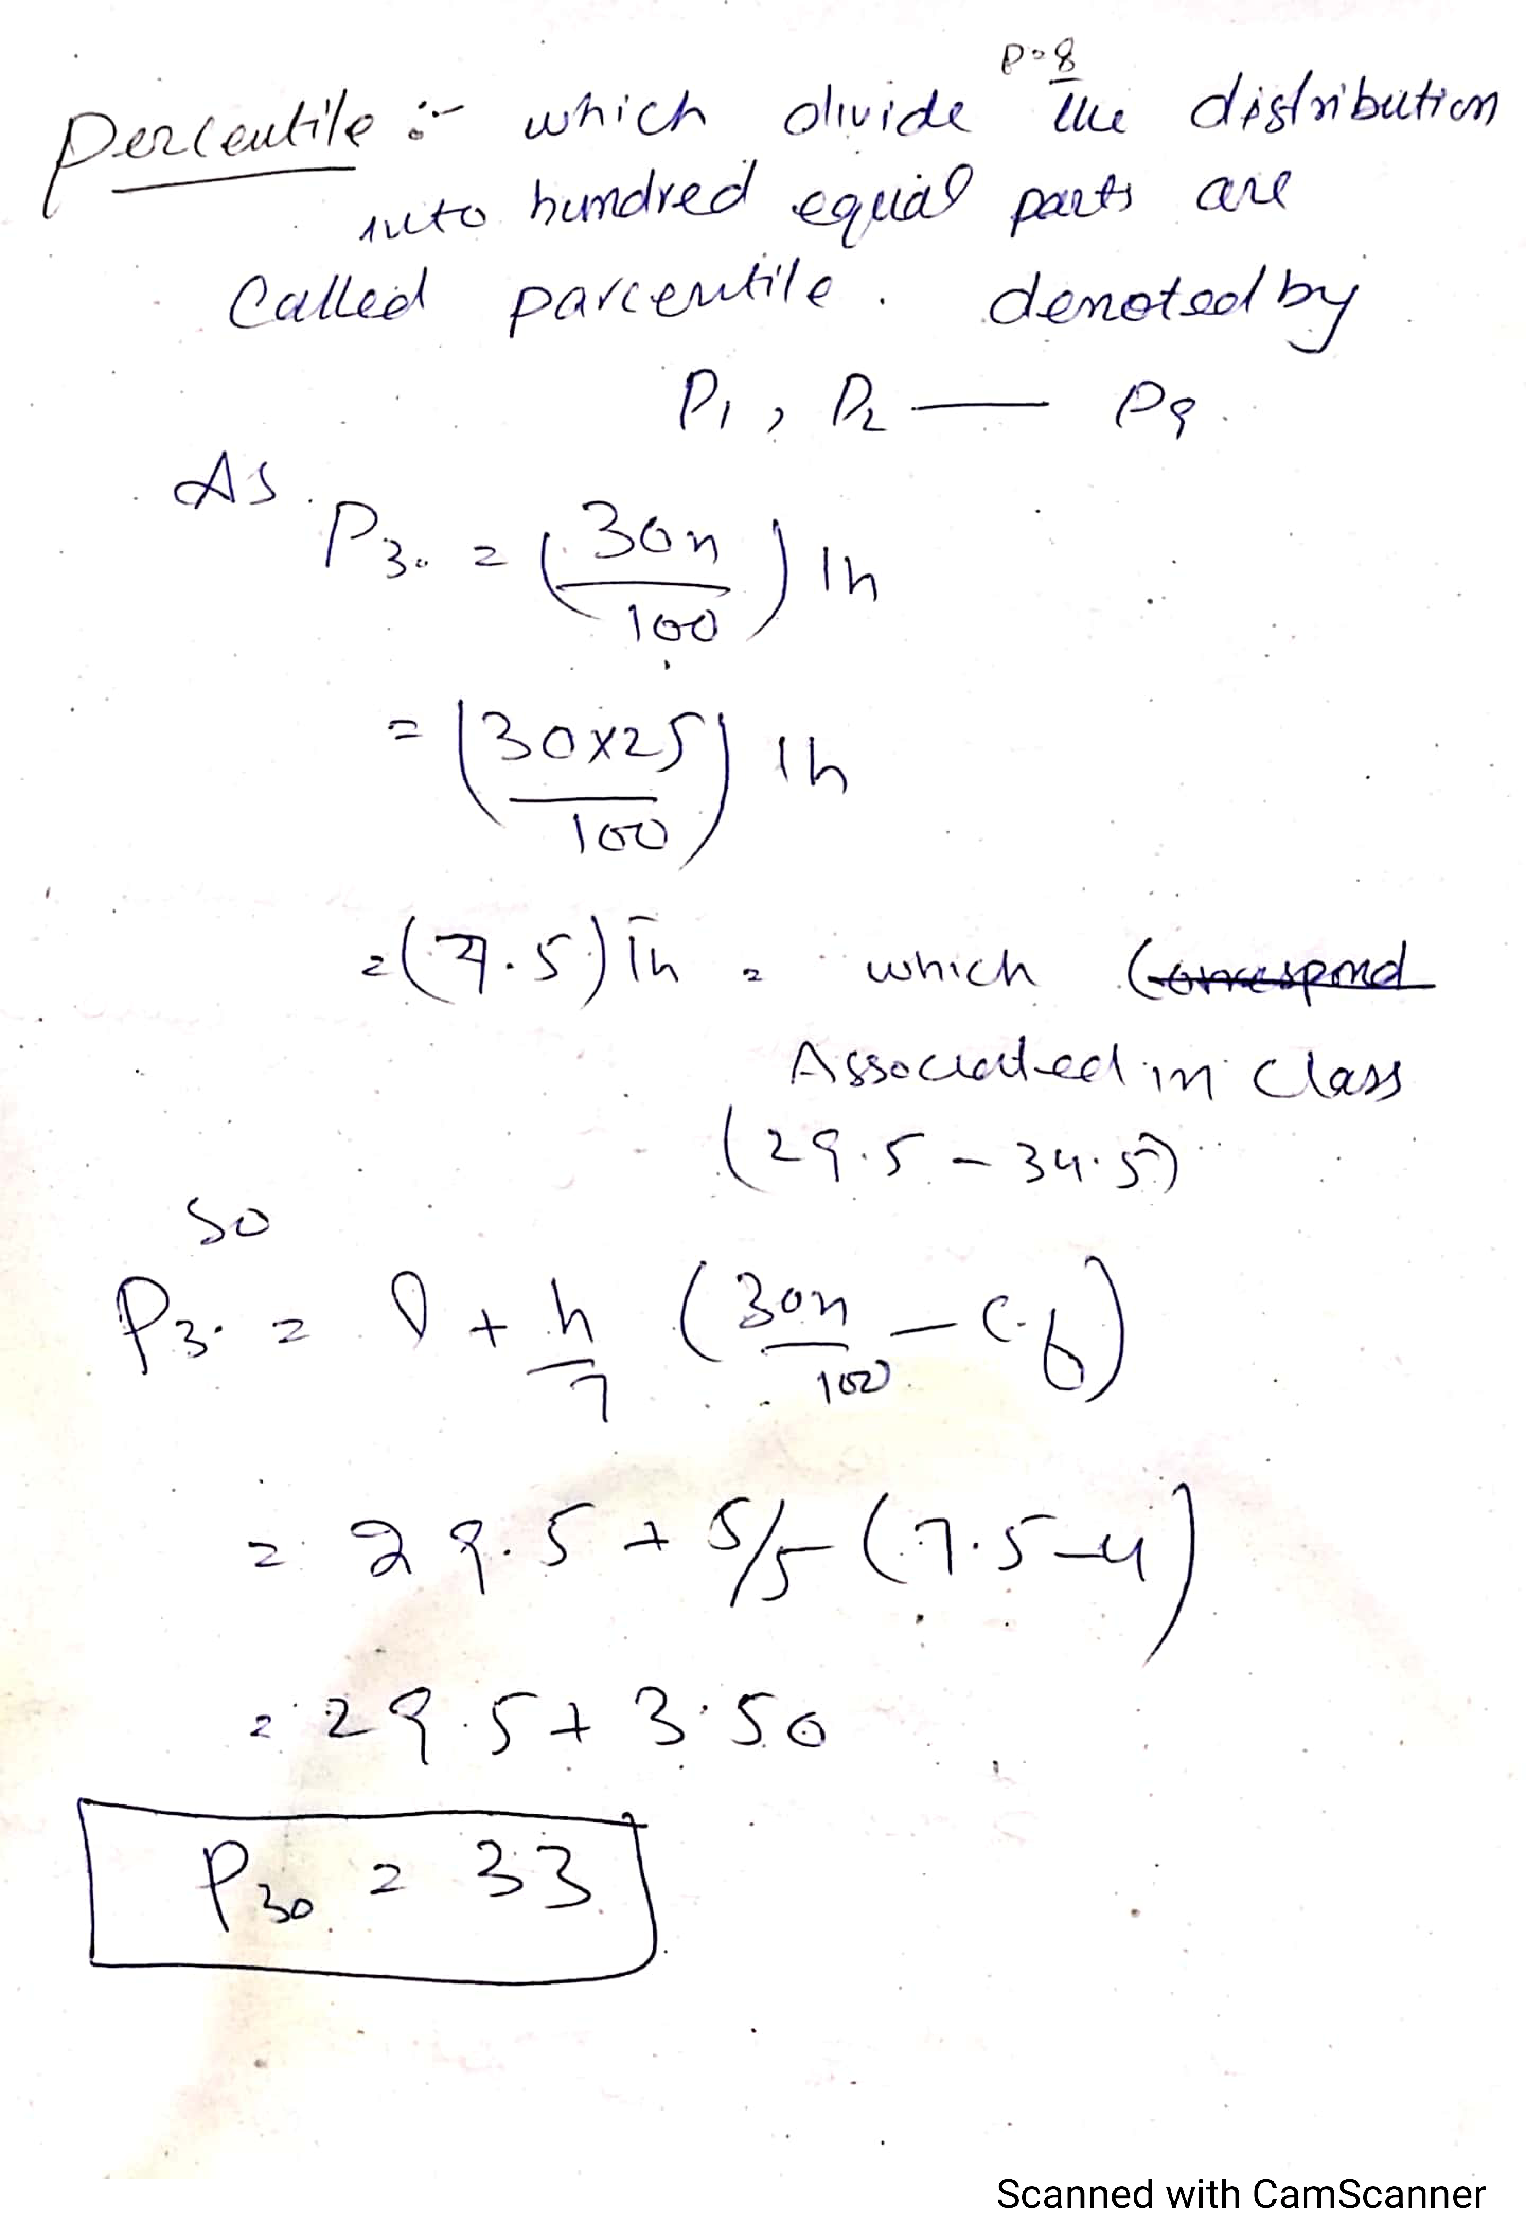 P=8
Percentile :- which divide the distribution
into hundred equal parts are
Called parcentile. denoted by
P1, P2 — P9.
As.
P30 = (30n/100) th
= (30x25/100) th
= (7.5) th = which Correspond
Associated in Class
(29.5 - 34.5)
So
P30 = l + h/7 (30n/100 - c.f)
= 29.5 + 5/5 (7.5-4)
= 29.5 + 3.50
P30 = 33
Scanned with CamScanner